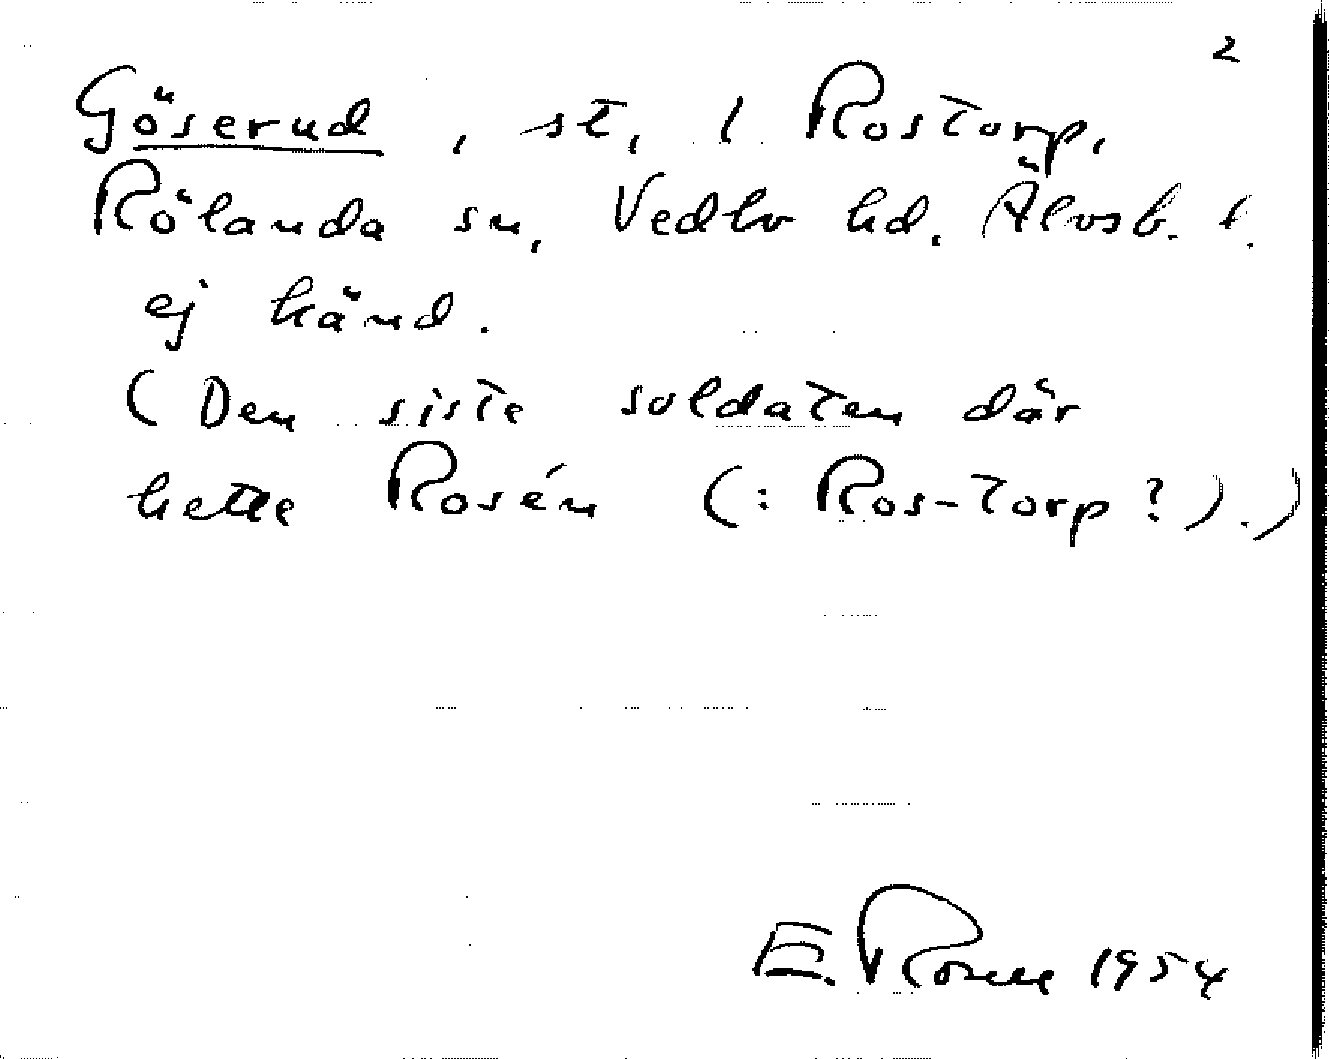 2
Göserud, st, l Rostorp,
Rölanda sn, Vedbo hd. Älvsb. l.
ej känd.
(Den siste soldaten där
hette Rosén (: Ros-torp?).)
E. Rosell 1954